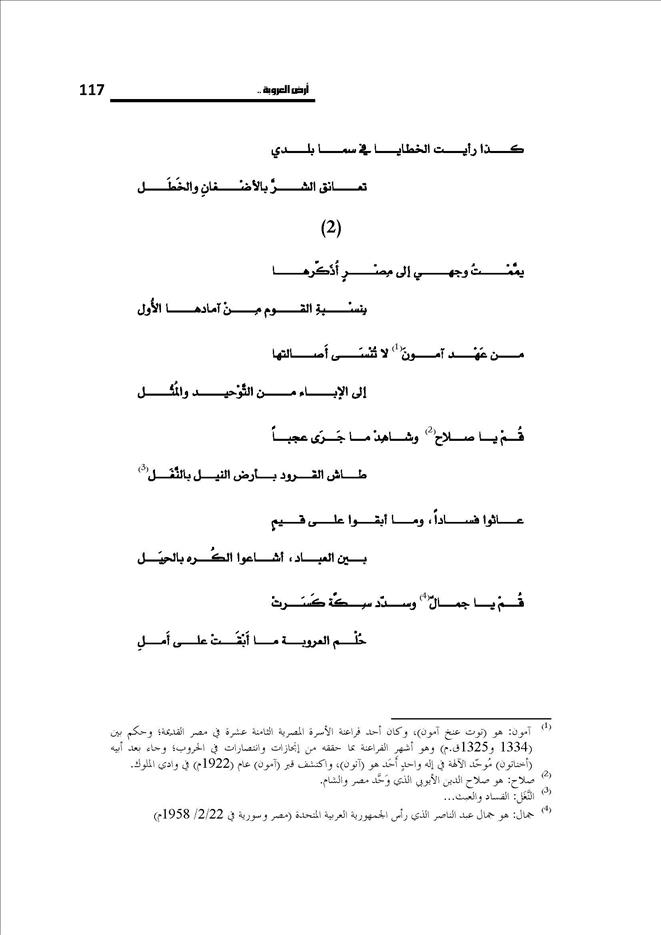 أرض العروبة .. 117
كذا رأيت الخطايا في سما بلدي
تعانق الشرَّ بالأضْغانِ والخَطَل
(2)
يمَّمْتُ وجهي إلى مِصْرٍ أُذَكِّرها
بِنسْبةِ القوم مِنْ آمادها الأُول
من عَهْد آمونَ(1) لا تُنْسَى أَصالتها
إلى الإباء من التَّوْحيد والمُثُل
قُمْ يا صلاح(2) وشاهِدْ ما جَرَى عجباً
طاش القرود بأرض النيل بالنَّغَل(3)
عاثوا فساداً، وما أبقوا على قيمٍ
بين العباد، أشاعوا الكُره بالحيَل
قُمْ يا جمالُ(4) وسدّد سِكَّة كَسَرتْ
حُلْم العروبة ما أَبْقَتْ على أَملِ
(1) آمون: هو (توت عنخ آمون)، وكان أحد فراعنة الأسرة المصرية الثامنة عشرة في مصر القديمة؛ وحكم بين
(1334 و1325ق.م) وهو أشهر الفراعنة بما حققه من إنجازات وانتصارات في الحروب؛ وجاء بعد أبيه
(أخناتون) مُوحّد الآلهة في إله واحدٍ أَحَد هو (آتون)، واكتشف قبر (آمون) عام (1922م) في وادي الملوك.
(2) صلاح: هو صلاح الدين الأيوبي الذي وَحَّد مصر والشام.
(3) النَّغَل: الفساد والعبث...
(4) جمال: هو جمال عبد الناصر الذي رأس الجمهورية العربية المتحدة (مصر وسورية في 2/22/ 1958م)